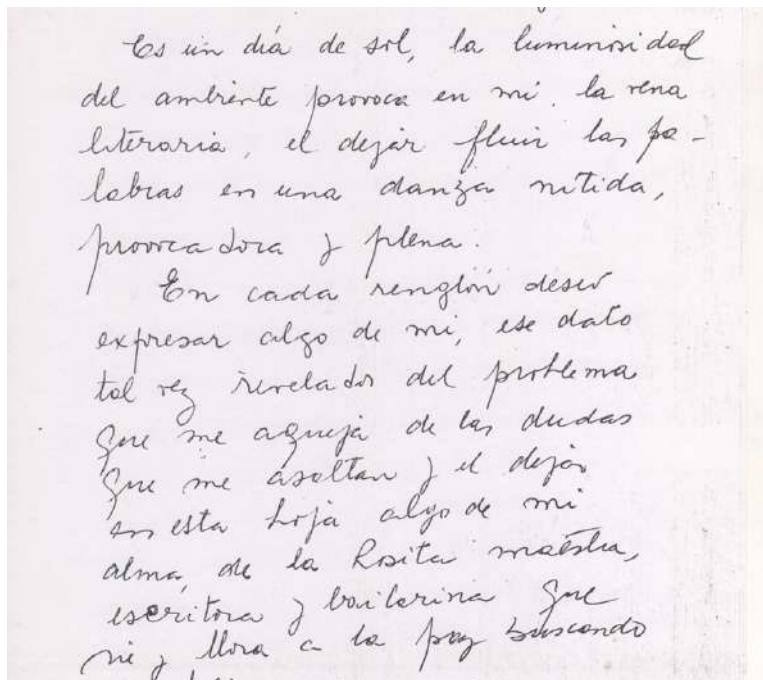 Es un día de sol, la luminosidad
del ambiente provoca en mi la vena
literaria, el dejar fluir las pa-
labras en una danza nítida,
provocadora y plena.
En cada renglón deseo
expresar algo de mi, ese dato
tal vez revelador del problema
que me aqueja de las dudas
que me asaltan y el dejar
en esta hoja algo de mi
alma, de la Rosita maestra,
escritora y bailarina que
rie y llora a la paz buscando